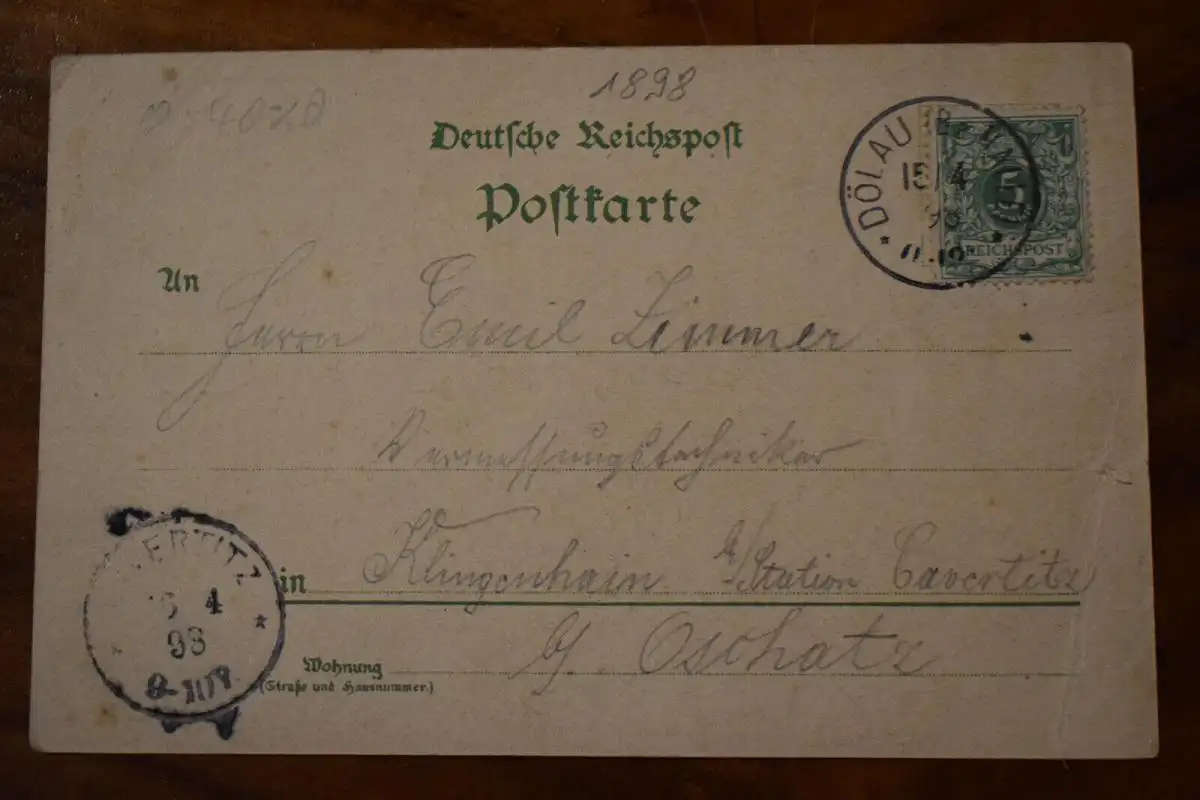 1898
Deutsche Reichspost
Postkarte
DÖLAU B.
15/4
98
5
REICHSPOST
An
Herrn Emil Zimmer
Vermessungstechniker
in Klingenhain b/Station Cavertitz
b. Oschatz
Wohnung
(Straße und Hausnummer.)
ERTITZ
4
98